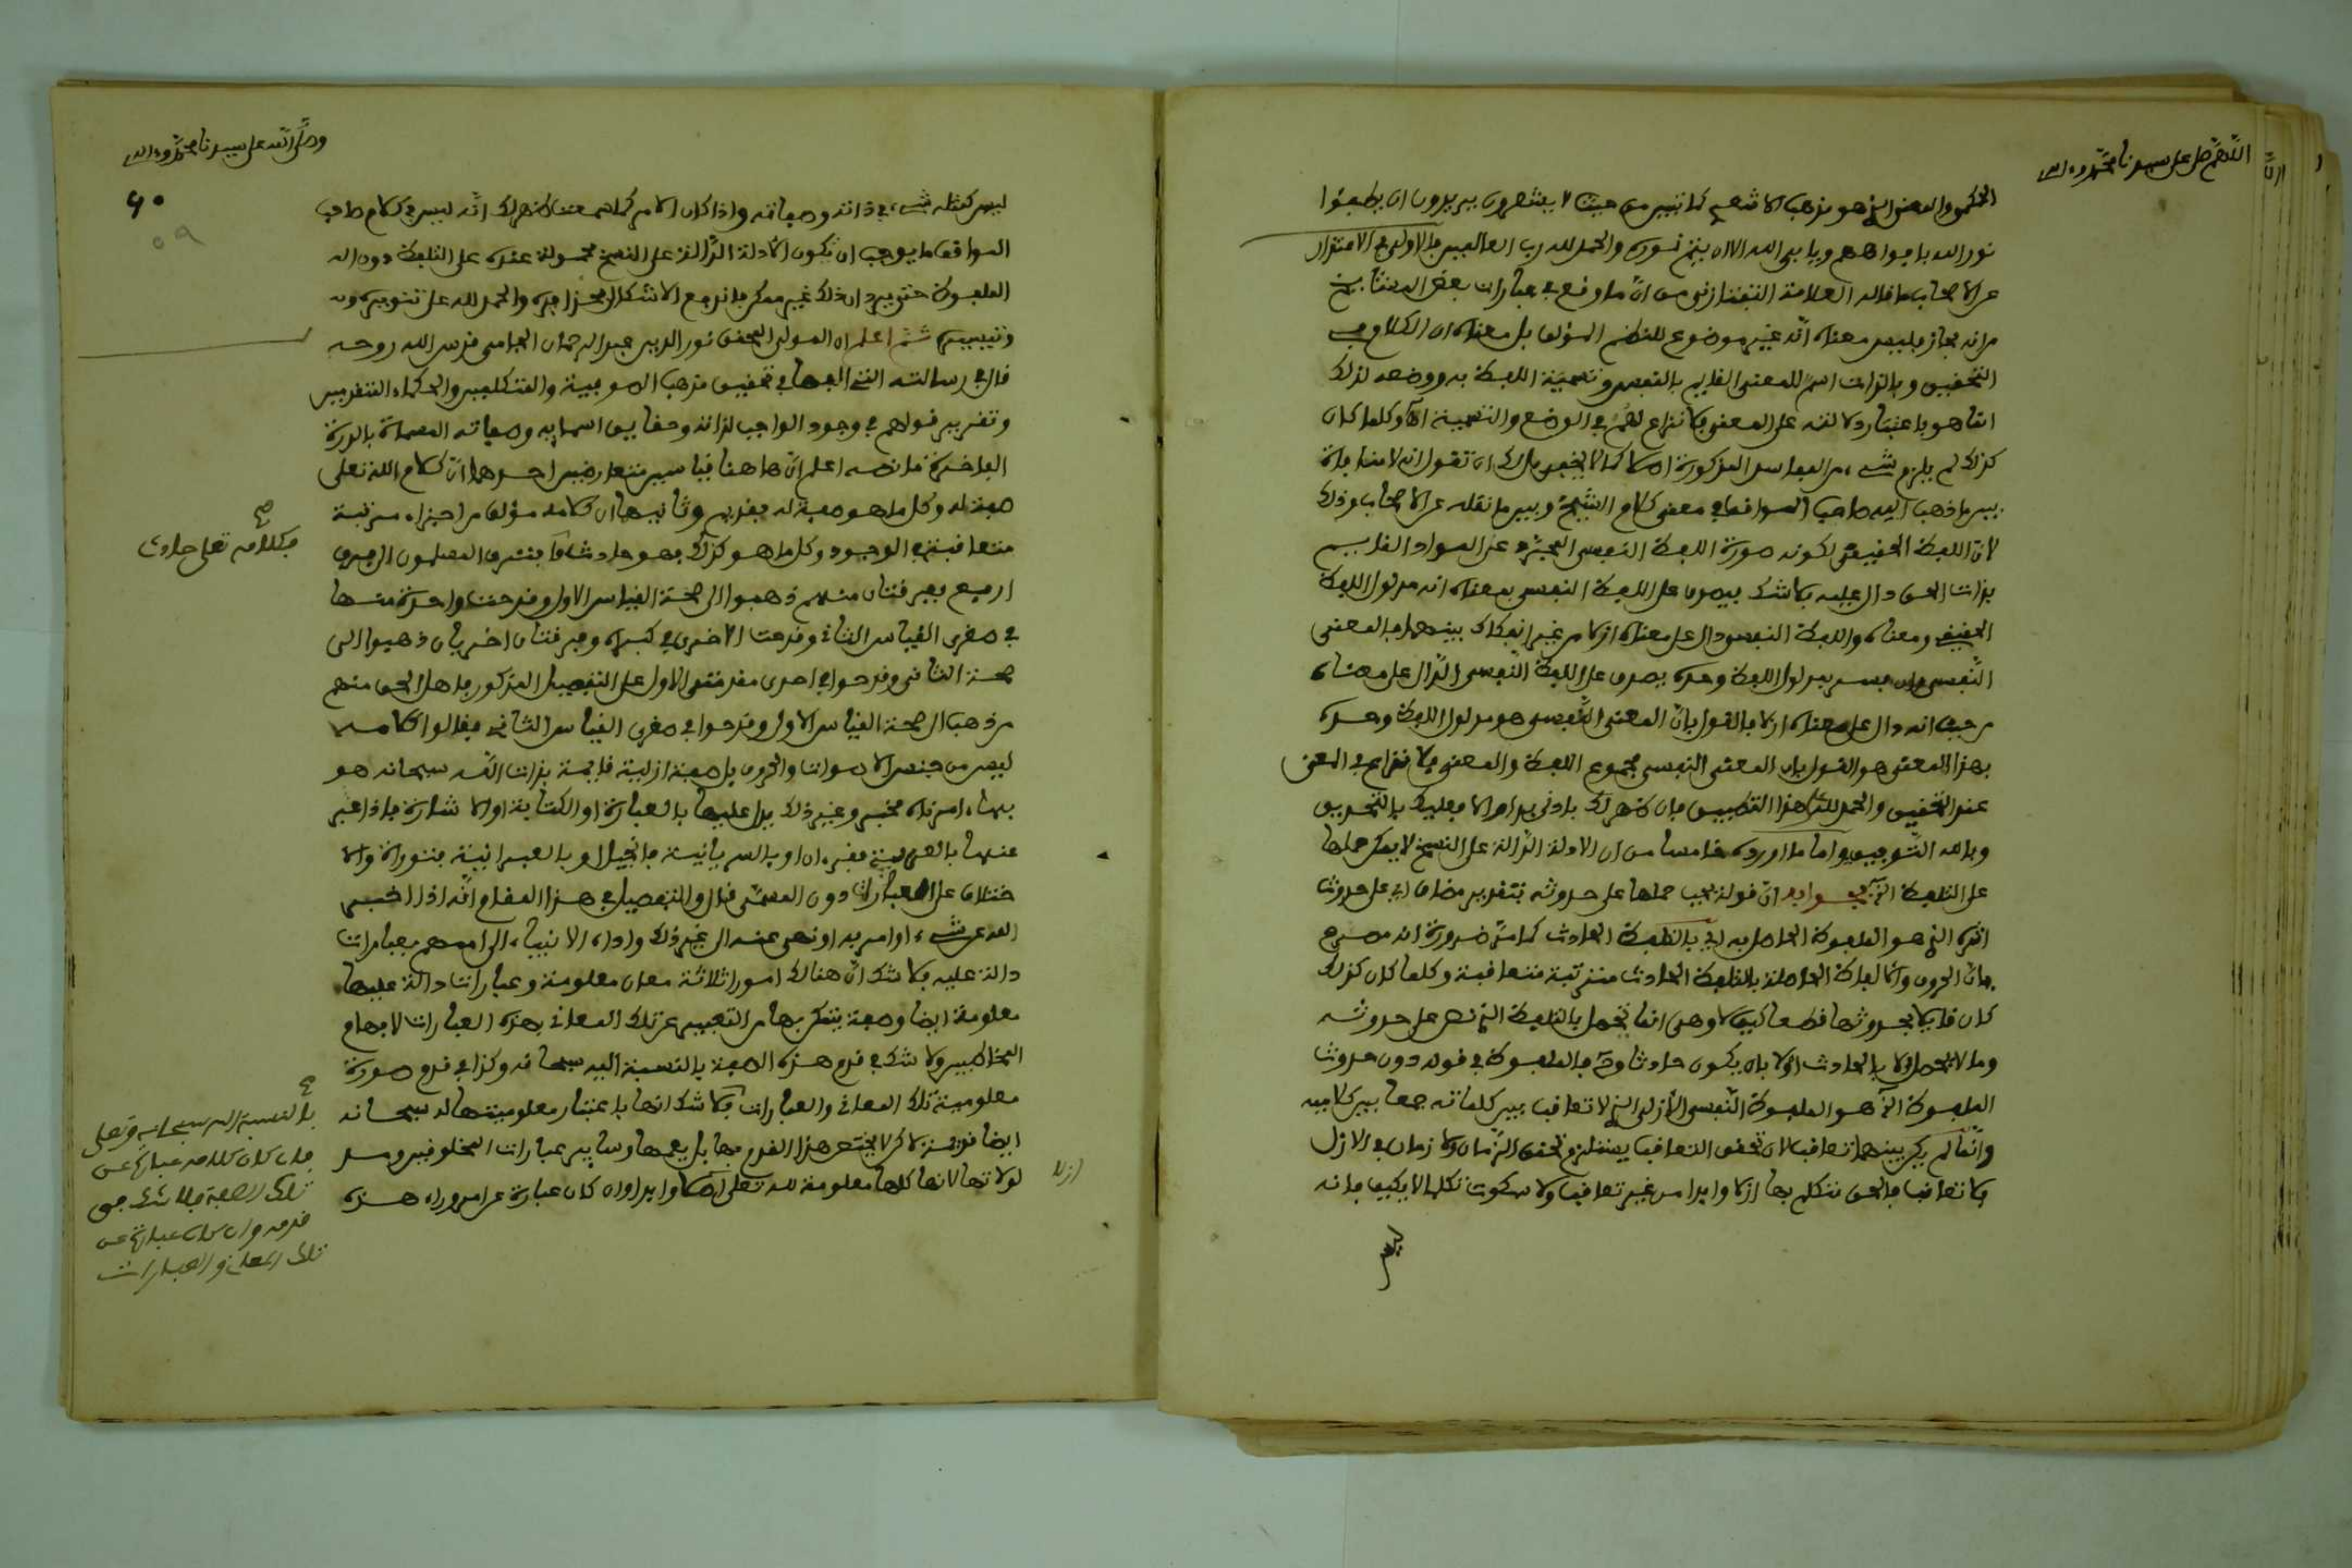 اللهم صل على سيدنا محمد وءاله
المحكم والمعنى الذي هو مذهب الاشعري كما تبين من حيث لا يشعرون يريدون ان يطفئوا
نور الله بافواههم ويابى الله الا ان يتم نوره والحمد لله رب العالمين
عن الاصحاب ما قاله العلامة التفتازاني من ان ما وقع في عبارات بعض المشايخ
من انه مجاز فليس معناه انه غير موضوع للنظم المؤلف بل معناه ان الكلام في
التحقيق وبالذات اسم للمعنى القايم بالنفس وتسمية اللفظ به ووضعه لذلك
انما هو باعتبار دلالته على المعنى فلا نزاع لهم في الوضع والتسمية وكلما كان
كذلك لم يلزم شيء من المفاسد المذكورة اصلا كما لا يخفى بل لك ان تقول انه لا منافاة
بين ما ذهب اليه صاحب المواقف في معنى كلام الشيخ وبين ما نقله عن الاصحاب وذلك
لان اللفظ الحقيقي لكونه صورة اللفظ النفسي المجرد عن المواد القايم
بذات الحق دال عليه بلا شك يصدق على اللفظ النفسي بمعناه انه مدلول اللفظ
الحقيقي ومعناه واللفظ النفسي دال على معناه ازلا من غير انفكاك بينهما فالمعنى
النفسي وان فسر بمدلول اللفظ وحده يصدق على اللفظ النفسي الدال على معناه
من حيث انه دال على معناه ازلا فالقول بان المعنى النفسي هو مدلول اللفظ وحده
بهذا المعنى هو القول بان المعنى النفسي مجموع اللفظ والمعنى فلا نزاع في المعنى
عند التحقيق والحمد لله هذا التطبيق فان ظهر لك بادنى والا فعليك بالتحديق
وبالله التوفيق واما ما اورده خامسا من ان الادلة الدالة على النسخ لا يمكن حملها
على التلفظ الخ فجوابه ان قوله يجب حملها على حدوثه بتقدير مضاف اي على حدوث
اثره الذي هو الملفوظ الحاصل به اي بالتلفظ الحادث كما مر ضرورة انه مصرح
بان الحروف والالفاظ الحاصلة بالتلفظ الحادث مترتبة متعاقبة وكلما كان كذلك
كان قايلا بحدوثها قطعا كيف لا وهي انما تحصل بالتلفظ الذي نص على حدوثه
وما لا يحصل الا بالحادث اولى بان يكون حادثا وح فالملفوظ في قوله دون حدوث
الملفوظ الخ هو الملفوظ النفسي الازلي الذي لا تعاقب بين كلماته جمعا بين كلاميه
وانما لم يكن بينهما تعاقب لان تحقق التعاقب يستلزم تحقق الزمان ولا زمان في الازل
فلا تعاقب فالحق متكلم بها ازلا وابدا من غير تعاقب ولا سكوت تكلما لا يكيف فانه
ليس
وصلى الله على سيدنا محمد وءاله
٦٠
٥٩
ليس كمثله شيء في ذاته وصفاته واذا كان الامر كما سمعت ظهر لك انه ليس في كلام صاحب
المواقف ما يوجب ان تكون الادلة الدالة على النسخ محمولة عنده على التلفظ دون
الملفوظ حتى يرد ان ذلك غير ممكن فاندفع الاشكال والحمد لله على تنويره
وتبيينه ثم اعلم ان المولى المحقق نور الدين عبد الرحمان الجامي قدس الله روحه
قال في رسالته التي الفها في تحقيق مذهب الصوفية والمتكلمين والحكماء المتقدمين
وتقرير قولهم في وجود الواجب لذاته وحقايق اسمايه وصفاته المسماة بالدرة
الفاخرة ما نصه اعلم ان هاهنا قياسين متعارضين احدهما ان كلام الله تعلى
صفة له وكل ما هو صفة له فقديم وثانيهما ان كلامه مؤلف من اجزاء مترتبة
متعاقبة في الوجود وكل ما هو كذلك فهو حادث فافترق المسلمون الى فرق
اربع ففرقتان منهم ذهبوا الى صحة القياس الاول وقدحت واحدة منهما
في صغرى القياس الثاني وقدحت الاخرى في كبراه وفرقتان اخريان ذهبوا الى
صحة الثاني وقدحوا في احدى مقدمتي الاول على التفصيل المذكور فاهل الحق منهم
من ذهب الى صحة القياس الاول وقدحوا في صغرى القياس الثاني فقالوا كلامه
ليس من جنس الاصوات والحروف بل صفة ازلية قايمة بذات الله سبحانه هو
بها ءامر ناه مخبر وغير ذلك يدل عليها بالعبارة او الكتابة او الاشارة فاذا عبر
عنها بالعربية فقرءان او بالسريانية فانجيل او بالعبرانية فتوراة والا
ختلاف على العبارات دون المسمى قال والتفصيل في هذا المقام انه اذا اخبر
الله عن شيء او امر به او نهى عنه الى غير ذلك واداه الانبياء الى اممهم بعبارات
دالة عليه فلا شك ان هناك امورا ثلاثة معان معلومة وعبارات دالة عليها
معلومة ايضا وصفة يتمكن بها من التعبير عن تلك المعاني بهذه العبارات لافهام
المخاطبين ولا شك في قدم هذه الصفة بالنسبة اليه سبحانه وكذا في قدم صورة
معلومية تلك المعاني والعبارات فلا شك انها باعتبار معلوميتها له سبحانه
ايضا قديمة لاكن لا يختص هذا القدم بها بل يعمها وساير عبارات المخلوقين ومد
لولاتها لانها كلها معلومة لله تعلى ازلا وابدا وان كان عبارة عن امر وراء هذه
فكلامه تعلى حادث
صح
بالنسبة اليه سبحانه وتعلى
فان كان كلامه عبارة عن
تلك الصفة فلا شك في
قدمه وان كان عبارة عن
تلك المعاني والعبارات
ازلا